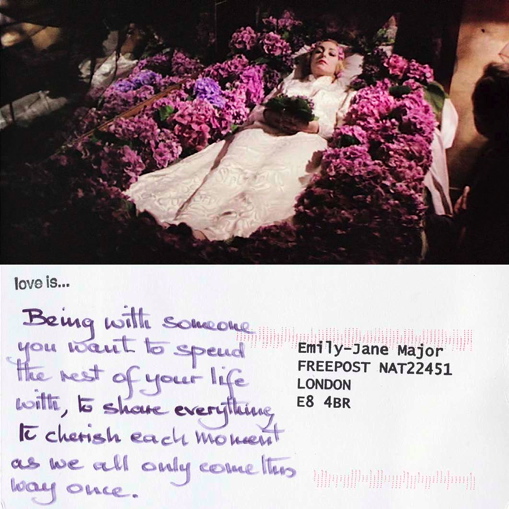 love is...
Being with someone
you want to spend
the rest of your life
with, to share everything,
to cherish each moment
as we all only come this
way once.
Emily-Jane Major
FREEPOST NAT22451
LONDON
E8 4BR